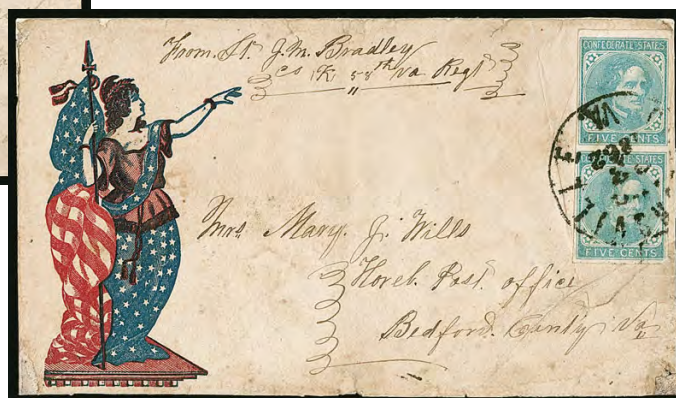 From. Lt. J. M. Bradley
Co "K" 58th Va. Regt
CONFEDERATE STATES
FIVE CENTS
CONFEDERATE STATES
FIVE CENTS
VA.
Mrs. Mary. J. Wills
Horeb. Post. office
Bedford. County Va